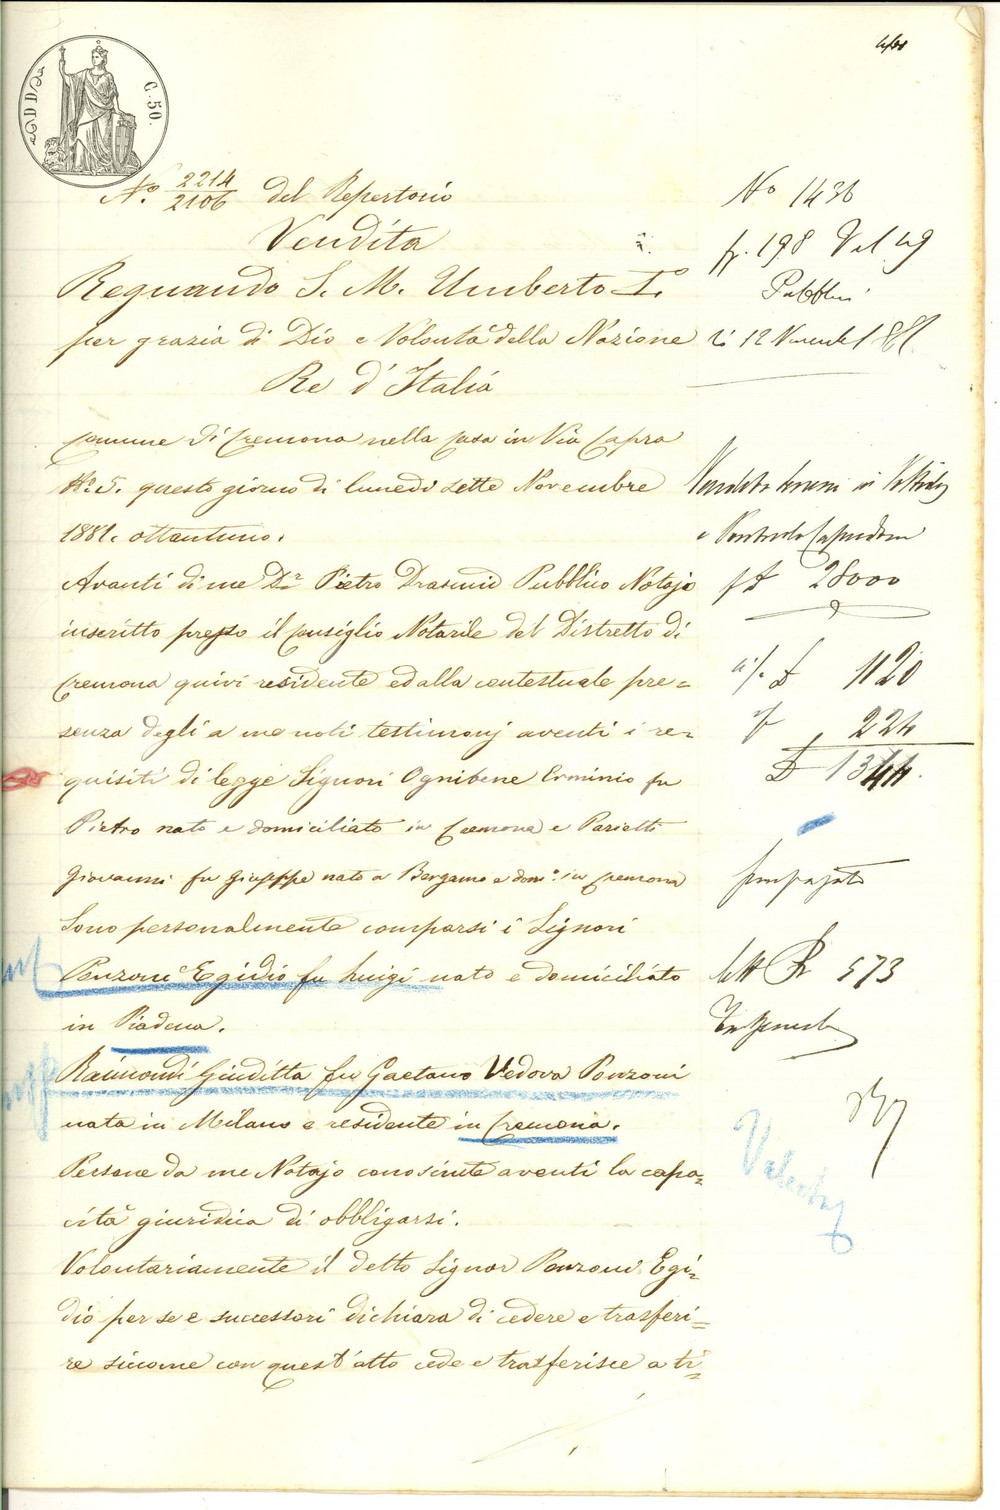 C. 50.
N.º 2214/2106 del Repertorio
Vendita
Regnando S. M. Umberto Iº
per grazia di Dio e Volontà della Nazione
Re d'Italia
Comune di Cremona nella casa in Via Capra
N.º 5. questo giorno di lunedì sette Novembre
1881. ottantuno.
Avanti di me Dr. Pietro Pubblico Notajo
inscritto presso il Consiglio Notarile del Distretto di
Cremona quivi residente ed alla contestuale pre=
senza degli a me noti testimonj aventi i re=
quisiti di legge Signori Ognibene Erminio fu
Pietro nato e domiciliato in Cremona e Parietti
Giovanni fu Giuseppe nato a Bergamo e dom.º in Cremona
Sono personalmente comparsi i Signori
Ponzoni Egidio fu Luigi nato e domiciliato
in Piadena.
Raimondi Giuditta fu Gaetano Vedova Ponzoni
nata in Milano e residente in Cremona.
Persone da me Notajo conosciute aventi la capa=
cità giuridica di obbligarsi.
Volontariamente il detto Signor Ponzoni Egi=
dio per se e successori dichiara di cedere e trasferi=
re siccome con quest'atto cede e trasferisce a ti=
No 1436
198 Vol 49
Pubblici
li 12 Novembre 1881
Vendita terreni in
28000
1120
224
1344
573